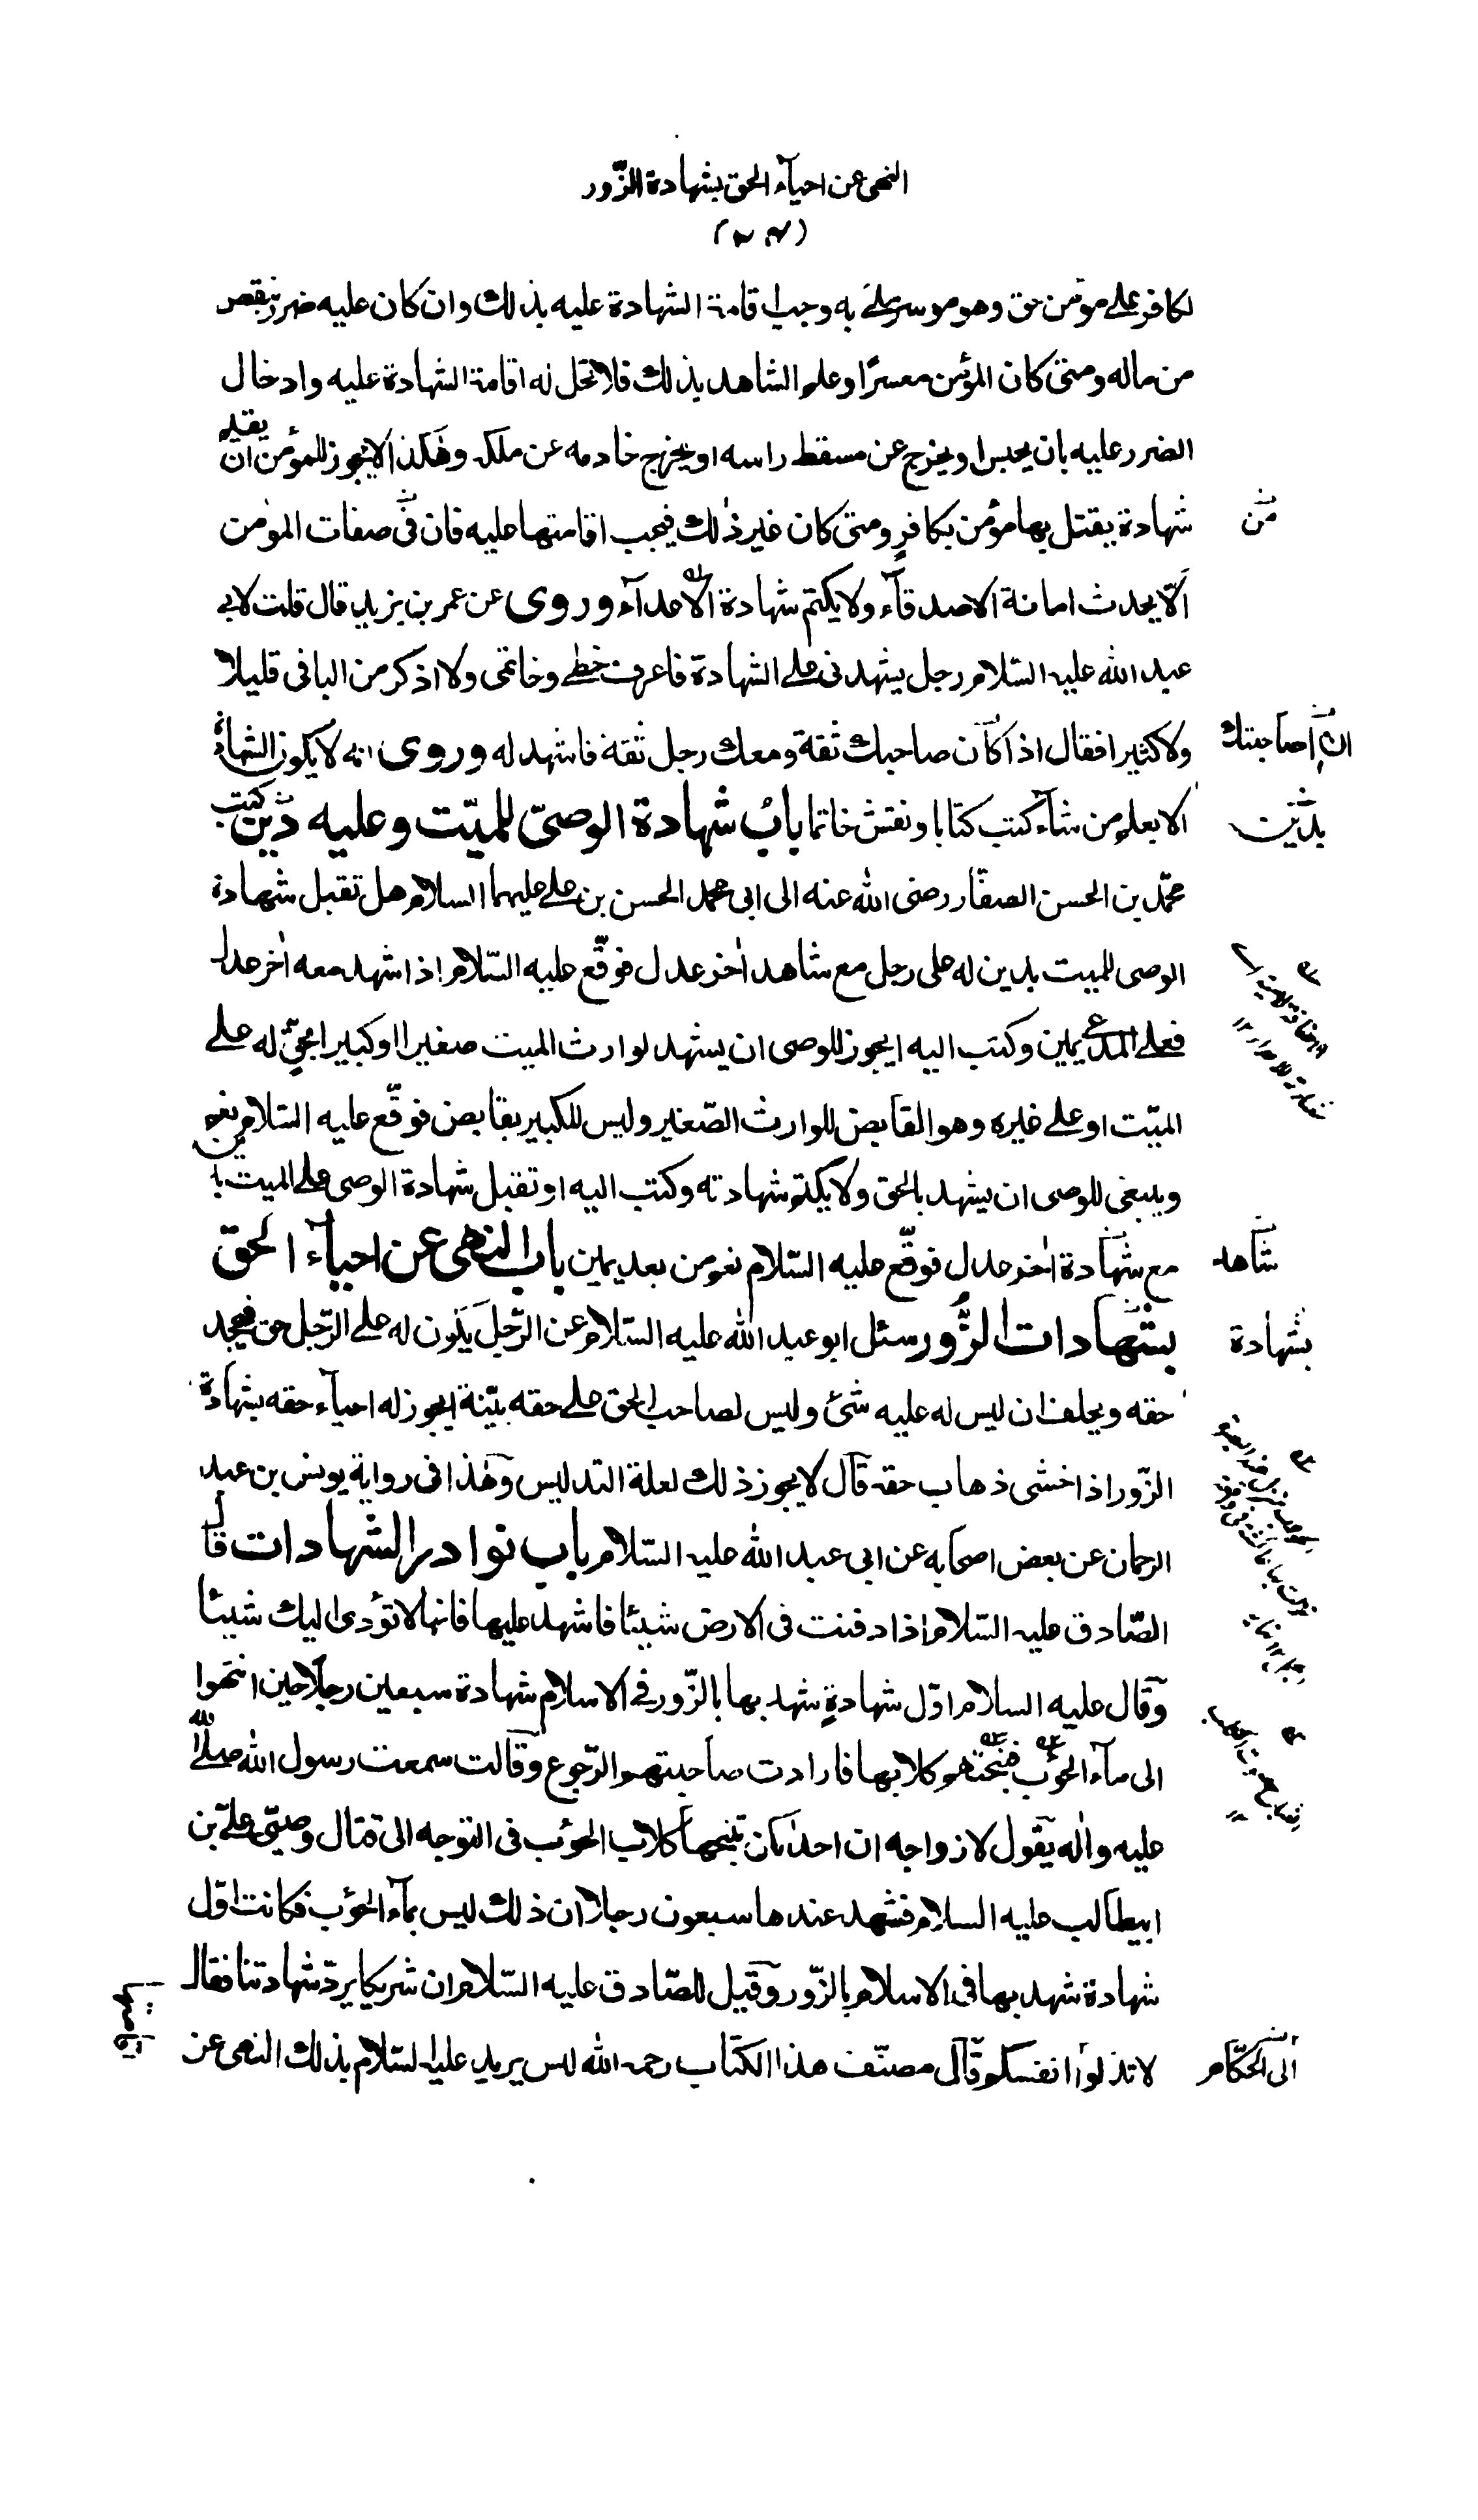 النهى عن احيآء الحق بشهادة الزّور
لكافر على مؤمن حق وهو موسر ملئ به وجب اقامة الشهادة عليه بذلك وان كان عليه ضرر بنقص
من ماله ومتى كان المؤمن معسرًا وعلم الشاهد بذلك فلا تحل له اقامة الشهادة عليه وادخال
الضرر عليه بان يحبس او يخرج عن مسقط راسه او يخرج خادمه عن ملكه وهكذا لا يجوز للمؤمن ان يقيم
شهادة يقتل بها مؤمن بكافرٍ ومتى كان غير ذلك فيجب اقامتها عليه فان فى صفات المؤمن
من
الّا يحدث امانة الاصدقآء ولا يكتم شهادة الاعدآء وروى عن عمر بن يزيد قال قلت لابى
عبد الله عليه السّلام رجل يشهدنى على الشهادة فاعرف خطى وخاتمى ولا اذكر من الباقى قليلا
ولا كثيرا فقال اذا كان صاحبك ثقة ومعك رجل ثقة فاشهد له وروى انه لا يكون الشهادة
الا بعلم من شآء كتب كتابا ونقش خاتما بابُ شهادة الوصىّ للميّت وعليه دَين كتب
بدين
محمّد بن الحسن الصفّار رضى الله عنه الى ابى محمد الحسن بن على عليهما السلام هل تقبل شهادة
الوصى للميت بدين له على رجل مع شاهد اٰخر عدل فوقّع عليه السّلام اذا شهد معه اٰخر عدل
فعلى المدعى يمين وكتب اليه ايجوز للوصى ان يشهد لوارث الميت صغيرا او كبيرا بحقٍ له على
الميّت او على غيره وهو القابض للوارث الصّغير وليس للكبير بقابض فوقّع عليه السّلام نعم
وينبغى للوصى ان يشهد بالحق ولا يكتم شهادته وكتب اليه او تقبل شهادة الوصى على الميت
مع شهادة اٰخر عدل فوقّع عليه السّلام نعم من بعد يمين باب النهى عن احيآء الحق
شاهد
بشهادات الزُّور سئل ابو عبد الله عليه السّلام عن الرّجل يكون له على الرّجل حق فيجحد
بشهادة
حقه ويحلف ان ليس له عليه شئ وليس لصاحب الحق على حقه بيّنة ايجوز له احيآء حقه بشهادة
الزّور اذا خشى ذهاب حقه قال لا يجوز ذلك لعلة التدليس وهٰذا فى رواية يونس بن عبد
الرحمان عن بعض اصحابه عن ابى عبد الله عليه السّلام باب نوادر الشهادات قال
الصّادق عليه السّلام اذا دفنت فى الارض شيئا فاشهد عليها فانها لا تؤدى اليك شيئا
وقال عليه السلام اوّل شهادةٍ شهد بها بالزّور فى الاسلام شهادة سبعين رجلا حين انتهوا
الى مآء الحوٴب فنبحتهم كلابها فارادت صاحبتهم الرّجوع وقالت سمعت رسول الله صلى الله
عليه واٰله يقول لازواجه ان احداكن تنبحها كلاب الحوٴب فى التوجه الى قتال وصيّى علىّ بن
ابيطالب عليه السلام فشهد عندها سبعون رجلا ان ذلك ليس بمآء الحوٴب فكانت اوّل
شهادة شهد بها فى الاسلام بالزّور وقيل للصّادق عليه السّلام ان شريكا يردّ شهادتنا فقال
لا تذلوا انفسكم قال مصنّف هذا الكتاب رحمه الله ليس يريد عليه السّلام بذلك النهى عن
الى الحكّام